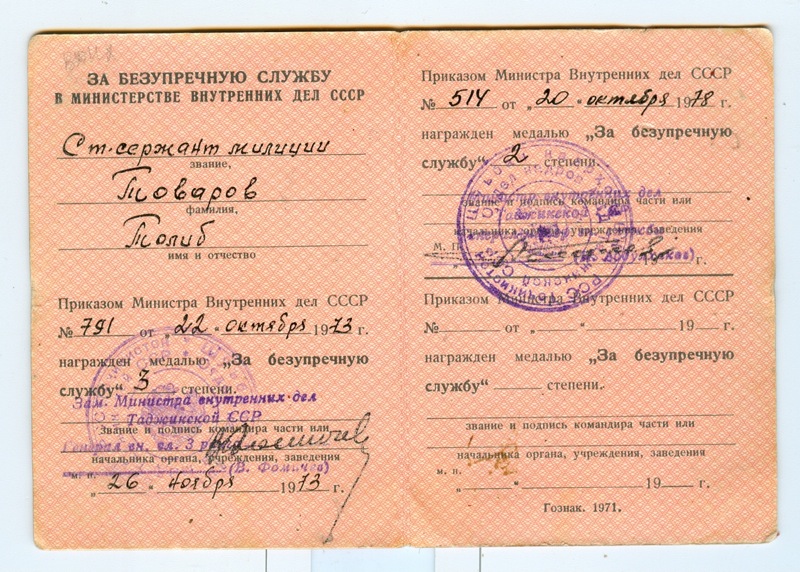 ЗА БЕЗУПРЕЧНУЮ СЛУЖБУ
В МИНИСТЕРСТВЕ ВНУТРЕННИХ ДЕЛ СССР
Ст. сержант милиции
звание,
Товаров
фамилия,
Толиб
имя и отчество
Приказом Министра Внутренних дел СССР
№ 791 от „22“ октября 1973 г.
награжден медалью „За безупречную
службу“ 3 степени.
Зам. Министра внутренних дел
Таджикской ССР
звание и подпись командира части или
Генерал вн. сл. 3 ранга
начальника органа, учреждения, заведения
(В. Фомичев)
м. п.
„26“ ноября 1973 г.
Приказом Министра Внутренних дел СССР
№ 514 от „20“ октября 1978 г.
награжден медалью „За безупречную
службу“ 2 степени.
Министр внутренних дел
звание и подпись командира части или
Таджикской
начальника органа, учреждения, заведения
м. п.
19 г.
Приказом Министра Внутренних дел СССР
№ — от „ — “ — 19 — г.
награжден медалью „За безупречную
службу“ — степени.
звание и подпись командира части или
начальника органа, учреждения, заведения
м. п.
„ “ 19 г.
Гознак. 1971.